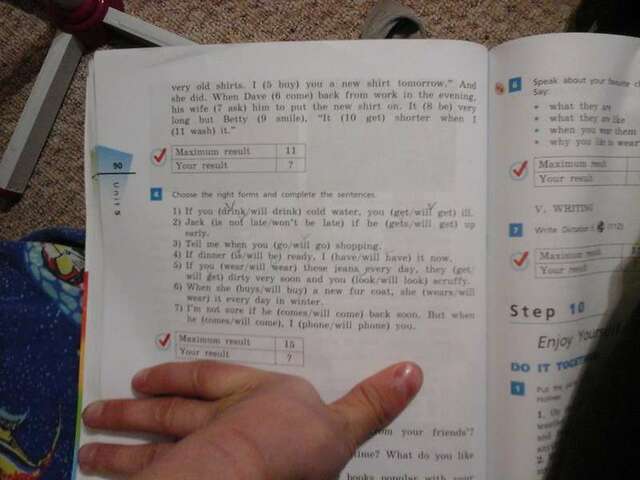 very old shirts. I (5 buy) you a new shirt tomorrow." And
she did. When Dave (6 come) back from work in the evening,
his wife (7 ask) him to put the new shirt on. It (8 be) very
long but Betty (9 smile). "It (10 get) shorter when I
(11 wash) it."
Maximum result 11
Your result ?
90
Unit 5
4 Choose the right forms and complete the sentences.
1) If you (drink/will drink) cold water, you (get/will get) ill.
2) Jack (is not late/won't be late) if he (gets/will get) up
early.
3) Tell me when you (go/will go) shopping.
4) If dinner (is/will be) ready, I (have/will have) it now.
5) If you (wear/will wear) these jeans every day, they (get/
will get) dirty very soon and you (look/will look) scruffy.
6) When she (buys/will buy) a new fur coat, she (wears/will
wear) it every day in winter.
7) I'm not sure if he (comes/will come) back soon. But when
he (comes/will come), I (phone/will phone) you.
Maximum result 15
Your result ?
from your friends'?
time? What do you like
books popular with your
6 Speak about your favourite
Say:
• what they are
• what they are like
• when you wear them
• why you like to wear
Maximum result
Your result
V. WRITING
7 Write Dictation (112)
Maximum
Your result
Step 10
Enjoy Yourself
DO IT TOGETHER
1 Put
1.
2.